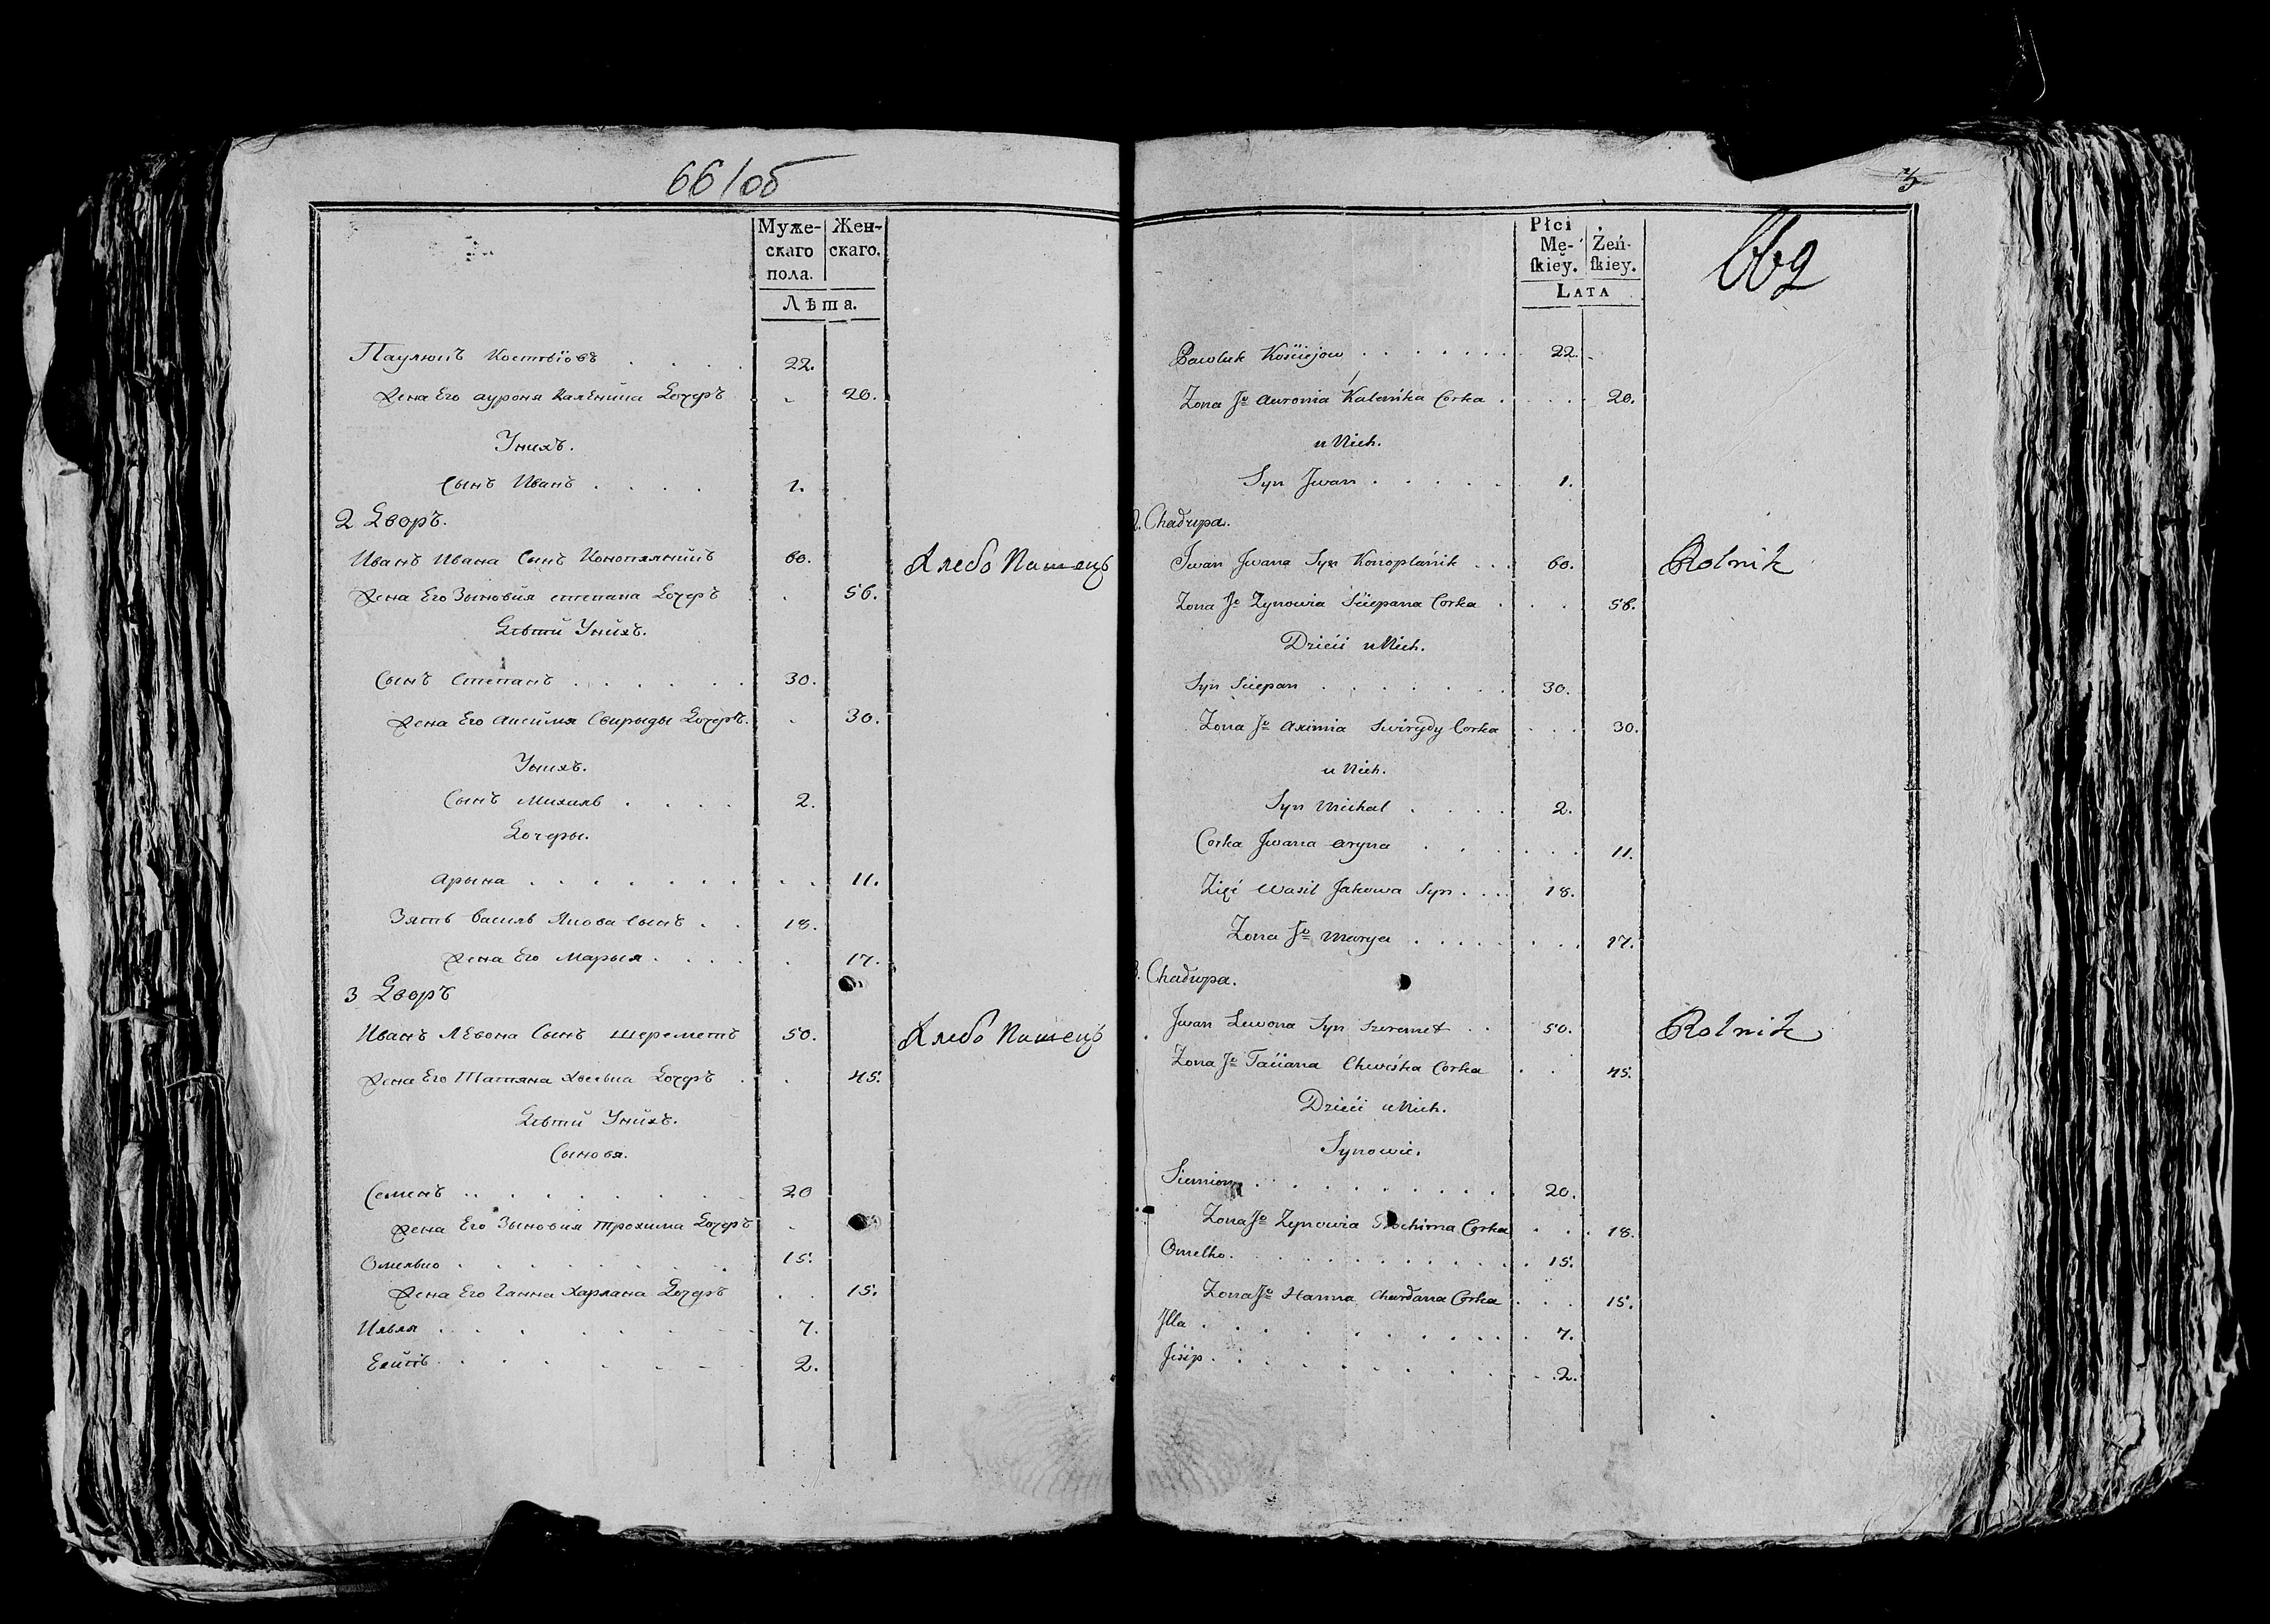 66/об
Муже-
скаго
пола.
Жен-
скаго.
Лѣта.
Паулюкъ Костѣіовъ . . . . 22.
Жена Его ауроня Каленика Дочеръ . 20.
Унихъ.
Сынъ Иванъ . . . . 1.
2 Дворъ.
Иванъ Ивана Сынъ Конопляникъ 60. Хлебо Пашецъ
Жена Его Зыновия степана Дочеръ . 56.
Дѣтй Унйхъ.
Сынъ Степанъ . . . . . . 30.
Жена Его Аксимя Свирыды Дочеръ. . 30.
Унихъ.
Сынъ Михаль . . . . 2.
Дочеры.
Арына . . . . . . . . . 11.
Зять Василь Якова Сынъ . . 18.
Жена Его Марыя . . . . . 17.
3 Дворъ
Иванъ Лѣвона Сынъ шереметъ 50. Хлебо Пашецъ
Жена Его Татяна Хвеська Дочеръ . . 45.
Дѣтй Унйхъ.
Сыновя.
Семенъ . . . . . . . . 20
Жена Его Зыновия трохима Дочеръ .
Омелько . . . . . . . . 15.
Жена Его Ганна Харлана Дочеръ . . 15.
Илья . . . . . . . . 7.
. . . . . . . . 2.
3
669
Płci
Mę-
skiey.
Żeń-
skiey.
LATA
Pawluk Kościejow . . . . . . . 22.
Zona Jo Auronia Kalenika Corka . . . . 20.
u Nich.
Syn Jwan . . . . . . 1.
2. Chadupa.
Jwan Jwana Syn Konoplanik . . . 60. Rolnik
Zona Jo Zynowia Sciepana Corka . . . . 56.
Dzieci u Nich.
Syn Sciepan . . . . . . . 30.
Zona Jo Aximia Swirydy Corka . . . 30.
u Nich.
Syn Michal . . . . 2.
Corka Jwana Aryna . . . . . . 11.
Zięć Wasil Jakowa Syn . . . . 18.
Zona Jo Marya . . . . . . . 17.
3. Chadupa.
Jwan Lewona Syn Szeremet . . 50. Rolnik
Zona Jo Taciana Chweśka Corka . . 45.
Dzieci u Nich.
Synowie.
Siemion . . . . . . . . . . 20.
Zona Jo Zynowia Trochima Corka . . . 18.
Omelko . . . . . . . . . . . . 15.
Zona Jo Hanna Chardana Corka . . . 15.
Jlla . . . . . . . . . . . . 7.
Jesip . . . . . . . . . . . . 2.